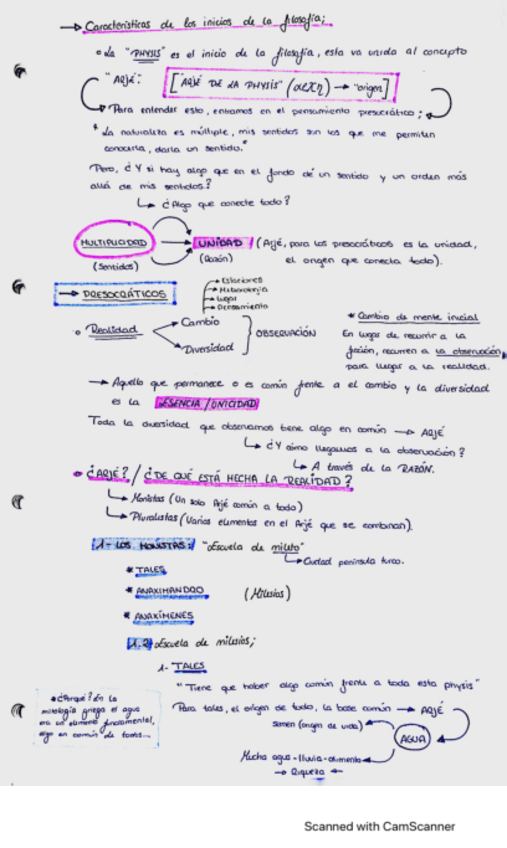 → Características de los inicios de la filosofía;
• La "PHYSIS" es el inicio de la filosofía, esta va unida al concepto
"ARJÉ": [ "ARJÉ DE LA PHYSIS" (αρχη) → "origen" ]
Para entender esto, entramos en el pensamiento presocrático;
"La naturaleza es múltiple, mis sentidos son los que me permiten
conocerla, darla un sentido."
Pero, ¿Y si hay algo que en el fondo dé un sentido y un orden más
allá de mis sentidos?
↳ ¿Algo que conecte todo?
MULTIPLICIDAD → UNIDAD (Arjé, para los presocráticos es la unidad,
(Sentidos) (Razón) el origen que conecta todo).
→ PRESOCRÁTICOS
→ Lugar
→ Pensamiento
• Realidad → Cambio
→ Diversidad
OBSERVACIÓN
* Cambio de mente inicial
En lugar de recurrir a la
recurren a la observación,
para llegar a la realidad.
→ Aquello que permanece o es común frente a el cambio y la diversidad
es la ESENCIA/UNICIDAD
Toda la diversidad que observamos tiene algo en común → ARJÉ
↳ ¿Y cómo llegamos a la observación?
↳ A través de la RAZÓN.
• ¿ARJÉ? / ¿DE QUÉ ESTÁ HECHA LA REALIDAD?
↳ Monistas (Un solo Arjé común a todo)
↳ Pluralistas (Varios elementos en el Arjé que se combinan).
1- LOS MONISTAS: "Escuela de mileto"
↳ Ciudad península turca.
* TALES
* ANAXIMANDRO (Milesios)
* ANAXÍMENES
1.2 Escuela de milesios;
1- TALES
"Tiene que haber algo común frente a toda esta physis"
Para tales, el origen de todo, la base común → ARJÉ
semen (origen de vida)
AGUA
Mucha agua - lluvia - alimento
→ Riqueza ←
* ¿Porqué? En la
mitología griega el agua
era un elemento fundamental,
algo en común de todos...
Scanned with CamScanner